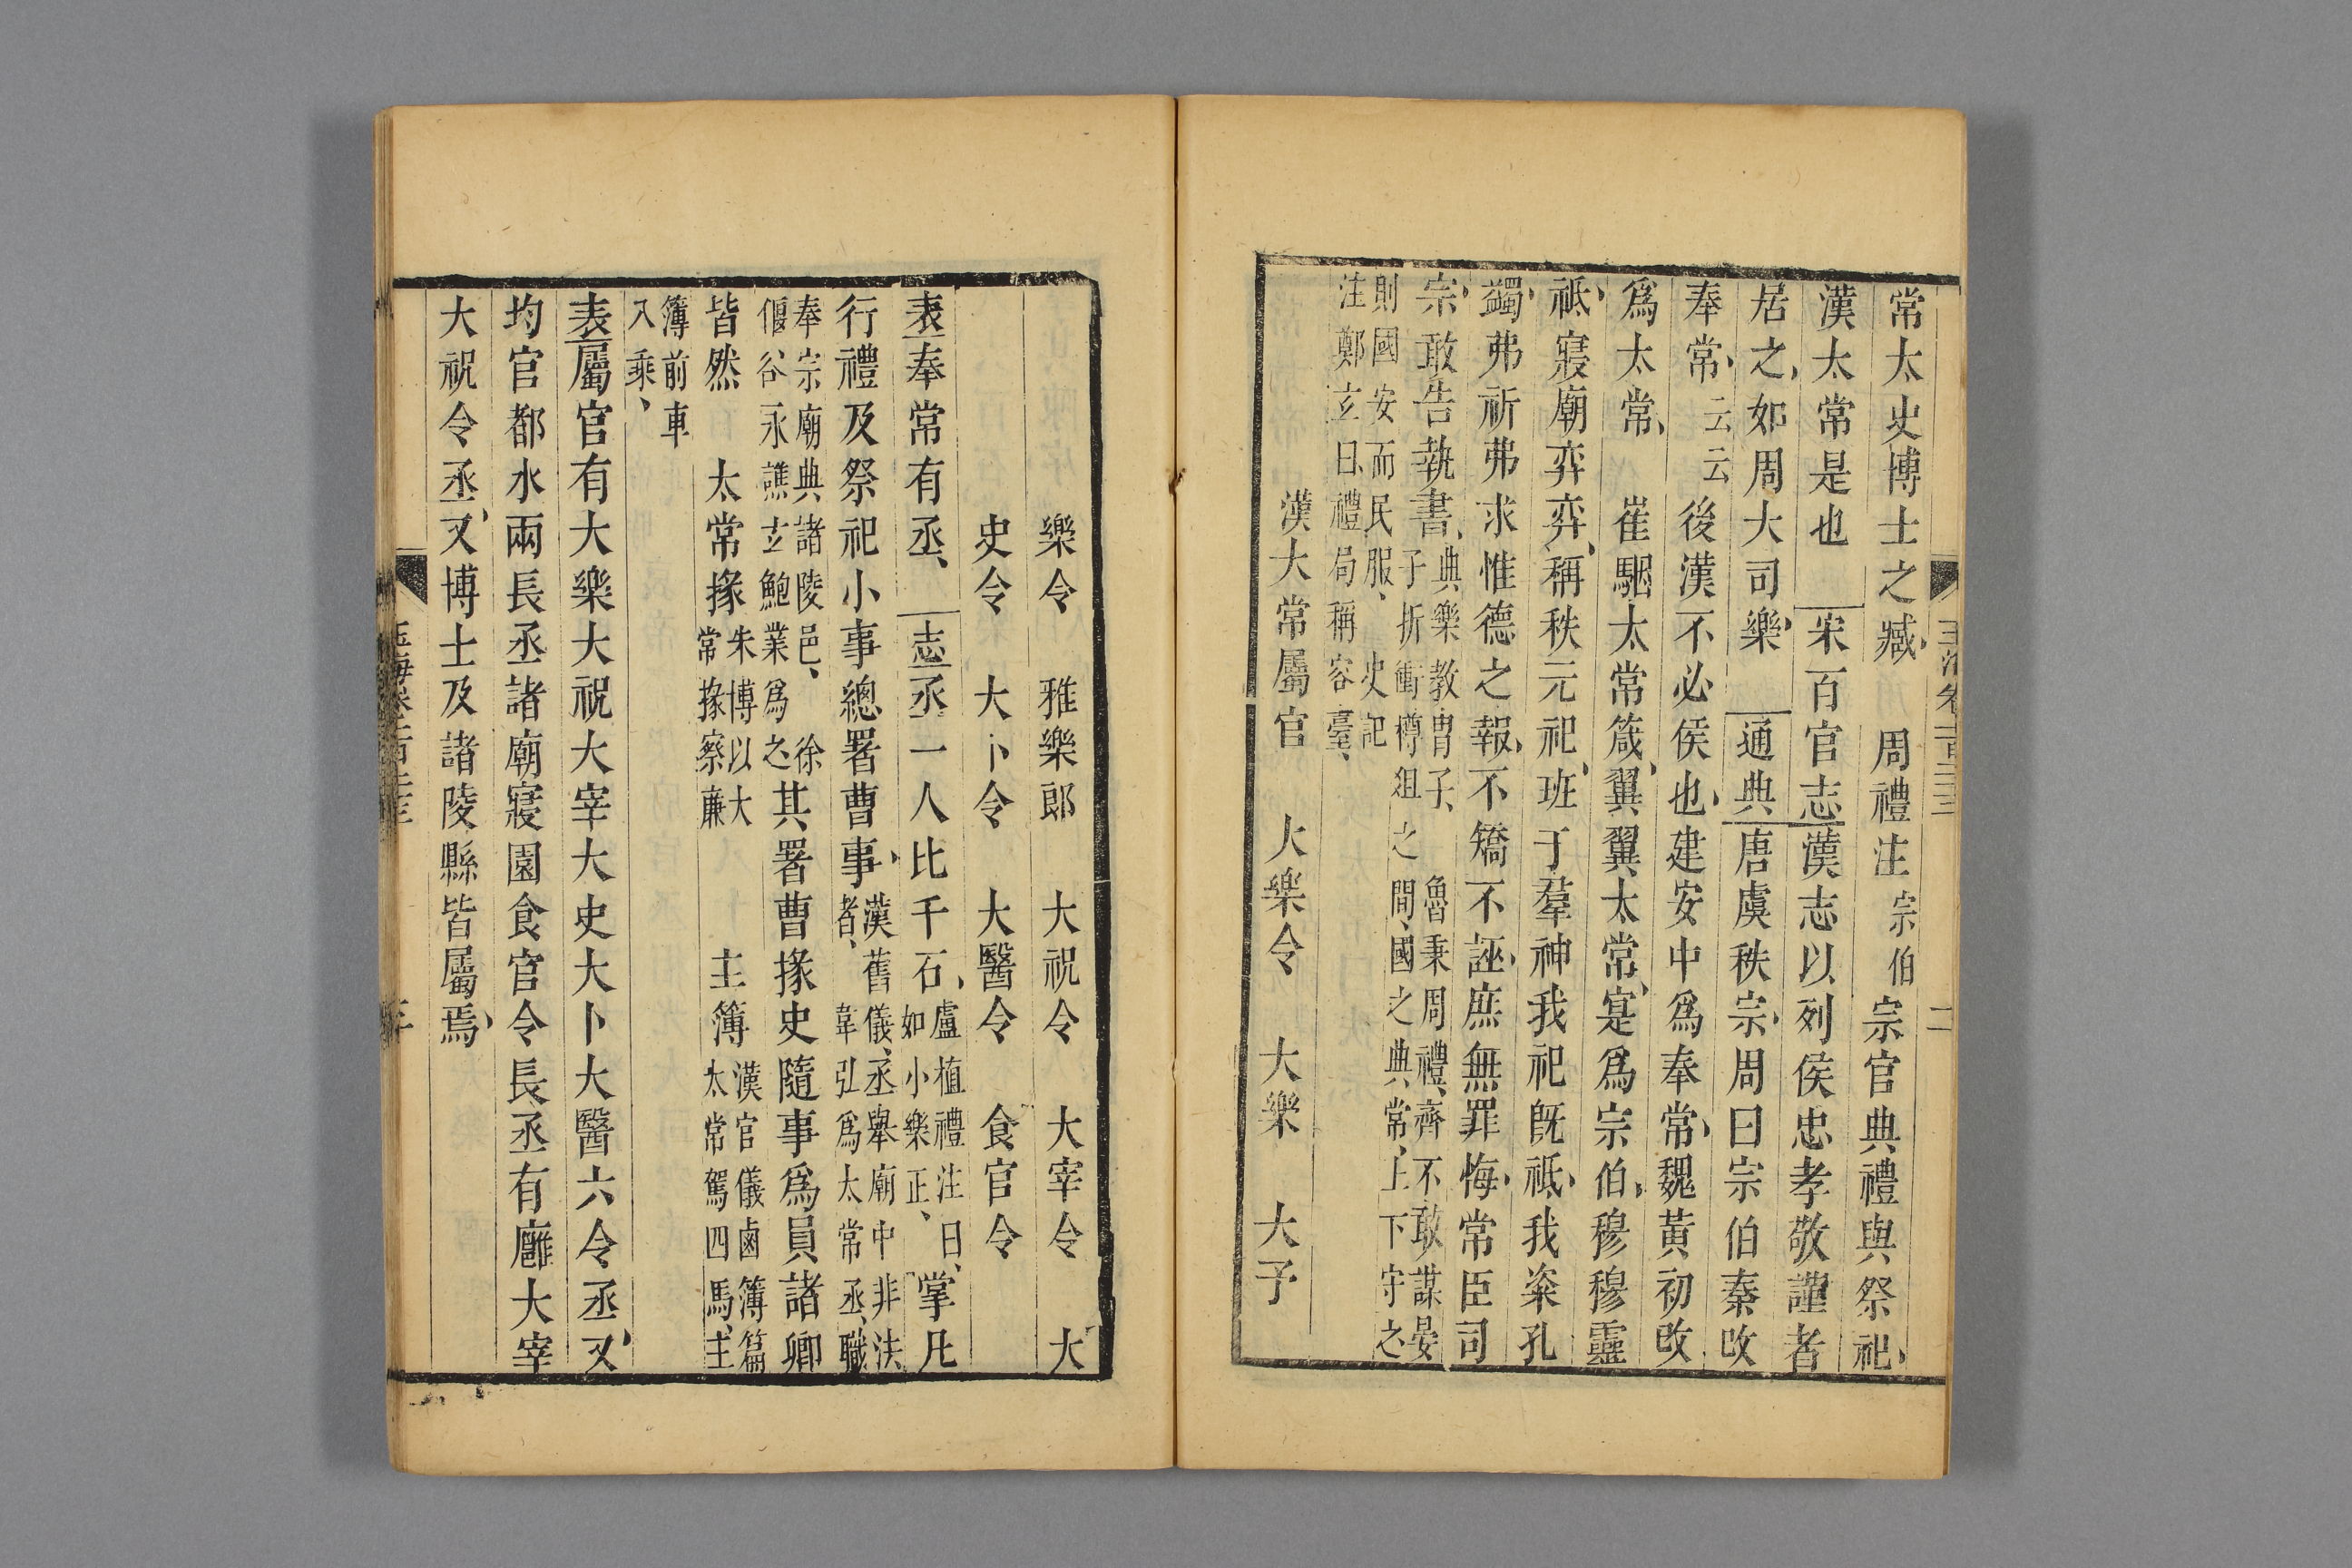 常太史博士之臧周禮注宗伯宗官典禮與祭祀
漢太常是也宋百官志漢志以列侯忠孝敬謹者
居之如周大司樂通典唐虞秩宗周曰宗伯秦改
奉常云云後漢不必侯也建安中爲奉常魏黃初改
爲太常崔駰太常箴翼翼太常寔爲宗伯穆穆靈
祗寢廟弈弈稱秩元祀班于羣神我祀旣祗我粢孔
蠲弗祈弗求惟德之報不矯不誣庶無罪悔常臣司
宗敢告執書典樂教胄子魯秉周禮齊不敢謀晏
子折衝樽俎之間國之典常上下守之
則國安而民服史記
注鄭玄曰禮局稱容臺
漢大常屬官 大樂令 大樂 大予
樂令 雅樂郎 大祝令 大宰令 大
史令 大卜令 大醫令 食官令
表奉常有丞志丞一人比千石盧植禮注曰
如小樂正掌凡
行禮及祭祀小事總署曹事漢舊儀丞舉廟中非法
者韋弘爲太常丞職
奉宗廟典諸陵邑徐
偃谷永譙玄鮑業爲之其署曹掾史隨事爲員諸卿
皆然 太常掾朱博以大
常掾察廉 主簿漢官儀鹵簿篇
太常駕四馬主
簿前車
八乘
表屬官有大樂大祝大宰大史大卜大醫六令丞又
均官都水兩長丞諸廟寢園食官令長丞有廱大宰
大祝令丞又博士及諸陵縣皆屬焉